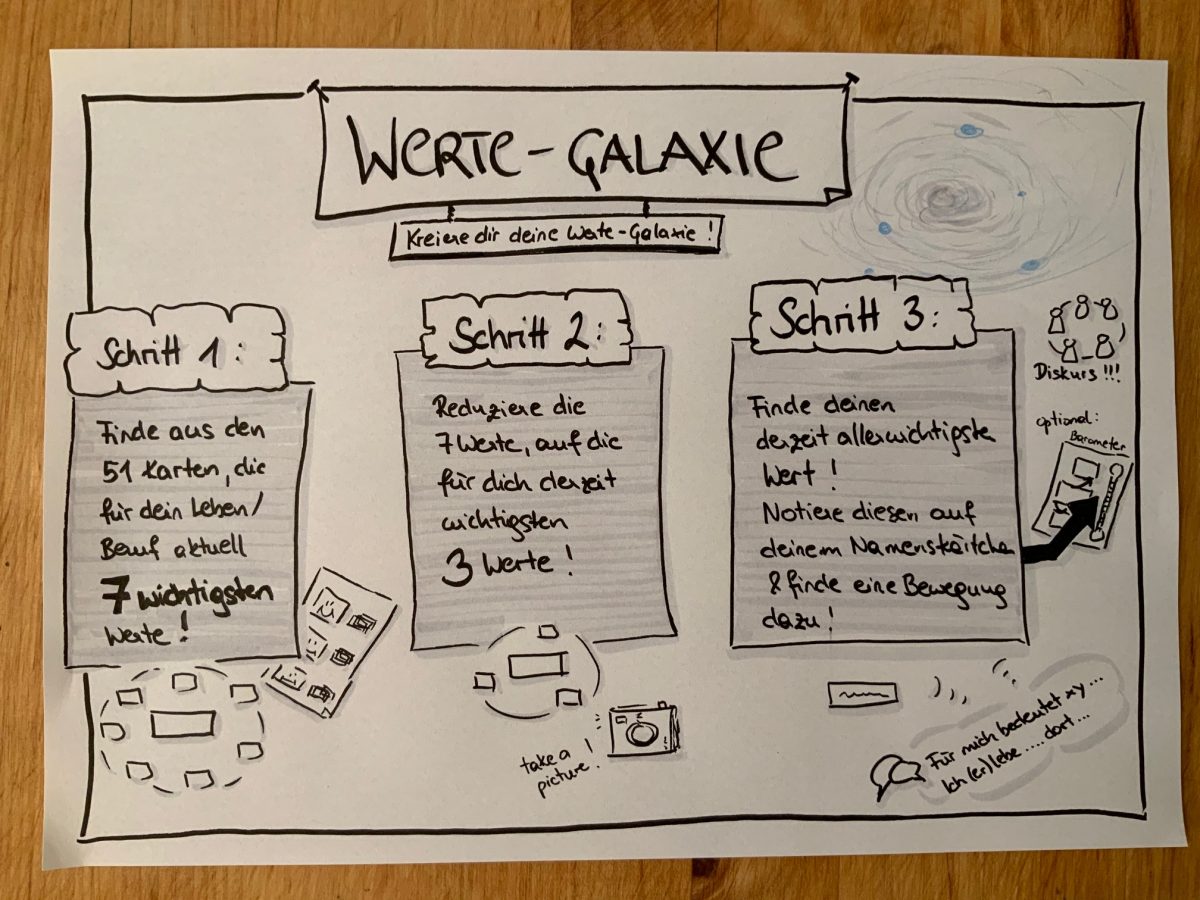 WERTE-GALAXIE
Kreiere dir deine Werte-Galaxie!
Schritt 1:
Finde aus den
51 Karten, die
für dein Leben/
Beruf aktuell
7 wichtigsten
Werte!
Schritt 2:
Reduziere die
7 Werte, auf die
für dich derzeit
wichtigsten
3 Werte!
take a
picture!
Schritt 3:
Finde deinen
derzeit allerwichtigste
Wert!
Notiere diesen auf
deinem Namenskärtchen
& finde eine Bewegung
dazu!
Diskurs!!!
optional:
Barometer
Für mich bedeutet xy...
Ich (er)lebe .... dort...